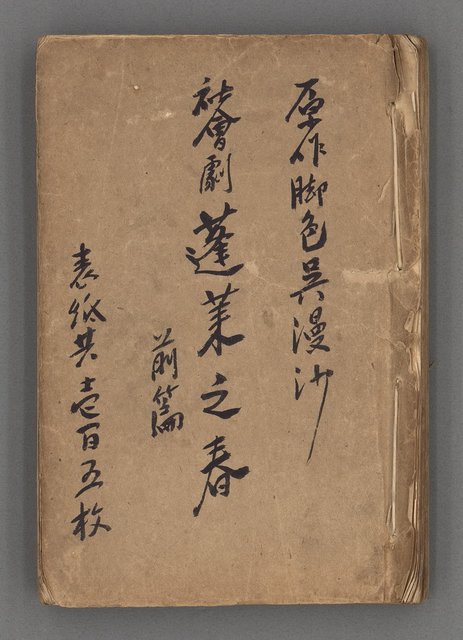 原作脚色吳漫沙
社會劇 蓬萊之春
前篇
表紙共壹百五枚